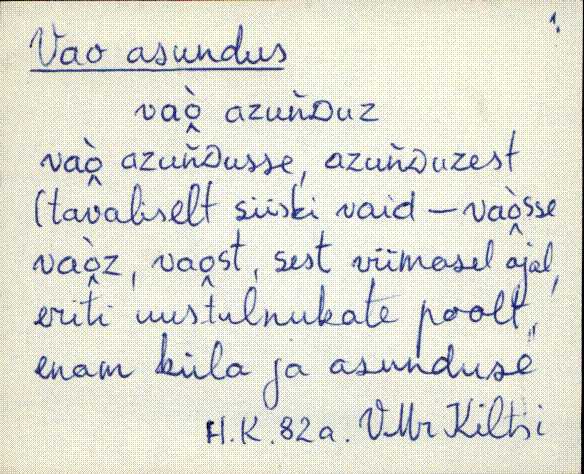 1.
Vao asundus
vaò̭ azuǹᴅuz
vaò̭ azuǹᴅusse, azuǹᴅuzest
(tavaliselt siiski vaid – vaò̭sse
vaò̭z, vao̭st, sest viimasel ajal,
eriti uustulnukate poolt „
enam küla ja asunduse"
H.K. 82a. VMr Kiltsi